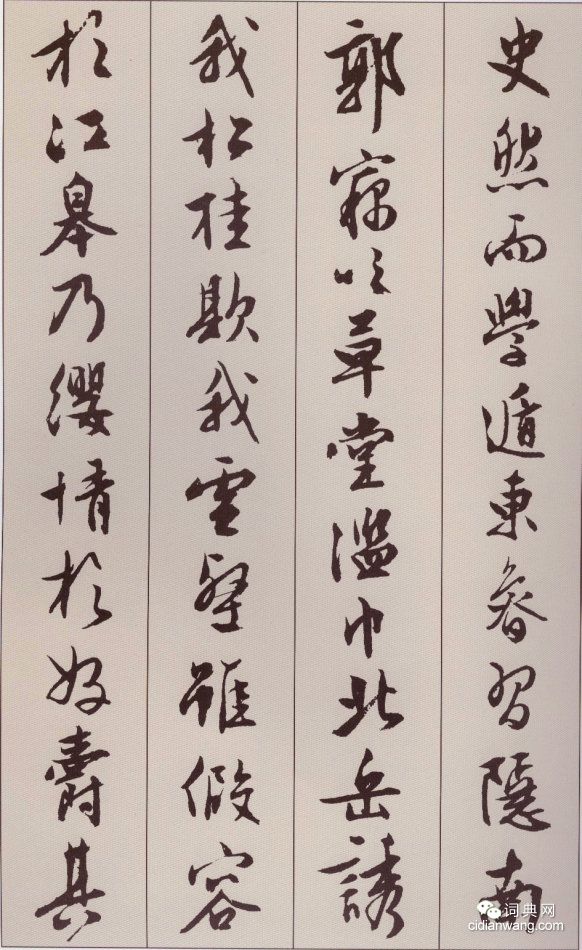 史然而學遁東魯習隱南
郭竊吹草堂濫巾北岳誘
我松桂欺我雲壑雖假容
於江皋乃纓情於好爵其
词典网
cidianwang.com